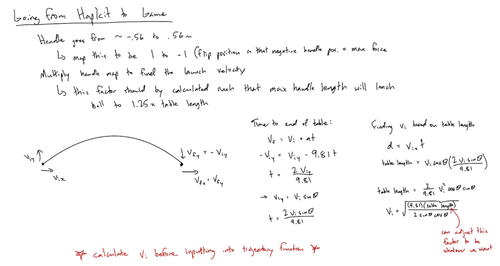 Going from Hapkit to Game
Handle goes from ~ -.56 to .56
↳ map this to be 1 to -1 (flip position so that negative handle pos. = max force
Multiply handle map to find the launch velocity
↳ this factor should be calculated such that max handle length will launch
ball to 1.25x table length
Viy
Vix
Vfy = -Viy
Vfx = Vix
Time to end of table:
Vf = Vi + at
-Viy = Viy - 9.81t
t = 2Viy / 9.81
→ Viy = Vi sinθ
t = 2Vi sinθ / 9.81
Finding Vi based on table length
d = Vix t
table length = Vi cosθ (2Vi sinθ / 9.81)
table length = 2 / 9.81 Vi² cosθ sinθ
Vi = √((9.81)(table length) / 2 sinθ cosθ)
can adjust this
factor to be
whatever we want
* calculate Vi before inputting into trajectory function *